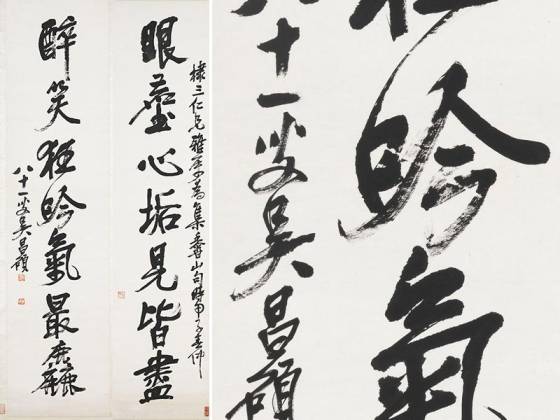 棣三仁兄雅屬為集香山句時甲子春仲
眼塵心垢見皆盡
醉笑狂吟氣最麤
八十一叟吳昌碩
狂吟氣
八十一叟吳昌碩